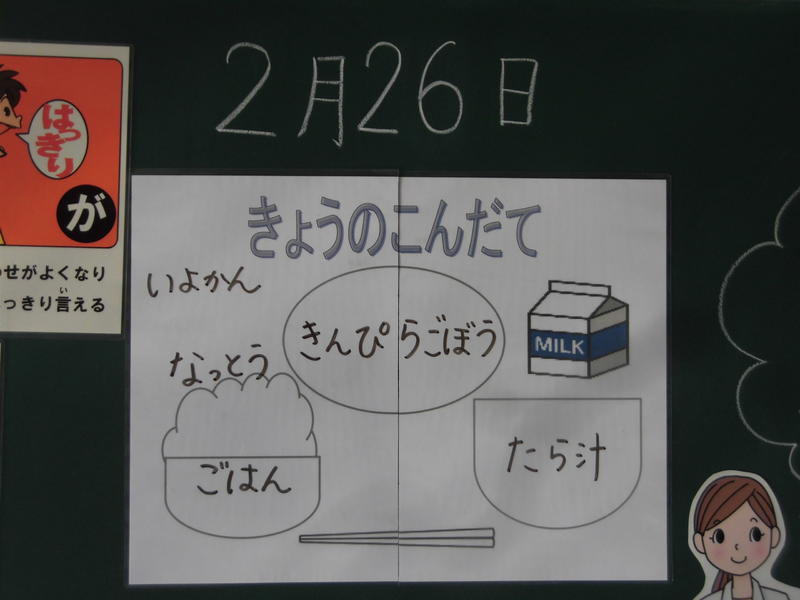 2月26日
はっきり
が
せがよくなり
い
っきり言える
きょうのこんだて
いよかん
きんぴらごぼう
MILK
なっとう
ごはん
たら汁